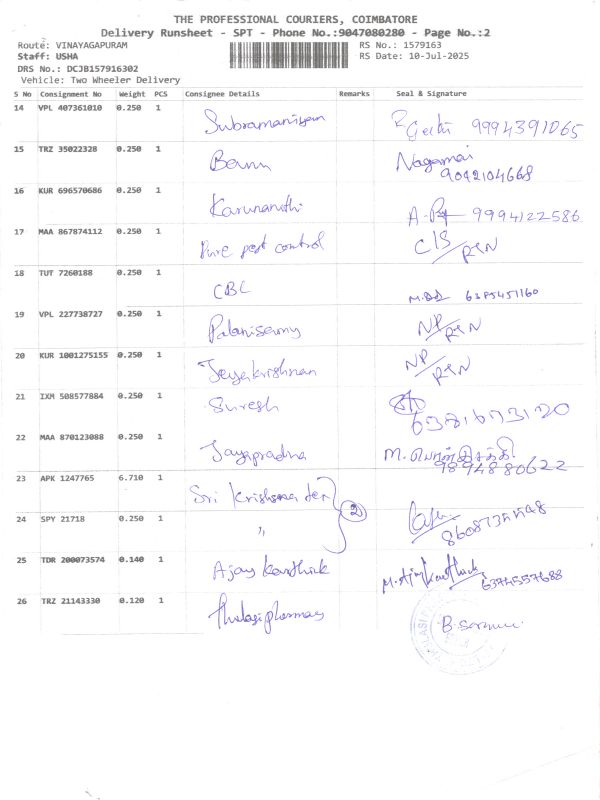 THE PROFESSIONAL COURIERS, COIMBATORE
Delivery Runsheet - SPT - Phone No.:9047080280 - Page No.:2
Route: VINAYAGAPURAM RS No.: 1579163
Staff: USHA RS Date: 10-Jul-2025
DRS No.: DCJB157916302
Vehicle: Two Wheeler Delivery
S No Consignment No Weight PCS Consignee Details Remarks Seal & Signature
14 VPL 407361010 0.250 1 Subramaniyam 9994391065
15 TRZ 35022328 0.250 1 Nagamai
9042104668
16 KUR 696570686 0.250 1 Karunanithi 9994122586
17 MAA 867874112 0.250 1 Pure pest control C/S/RTN
18 TUT 7260188 0.250 1 CBC
19 VPL 227738727 0.250 1 Palanisamy NP/RTN
20 KUR 1001275155 0.250 1 Jeyakrishnan NP/RTN
21 IXM 508577884 0.250 1 Suresh
6381673120
22 MAA 870123088 0.250 1 Jayapradha M.
9894880622
23 APK 1247765 6.710 1 Sri Krishna
24 SPY 21718 0.250 1 " 2
25 TDR 200073574 0.140 1 Ajay Karthick M. Ajay Karthick
6374557688
26 TRZ 21143330 0.120 1 Thulasi pharmacy B.